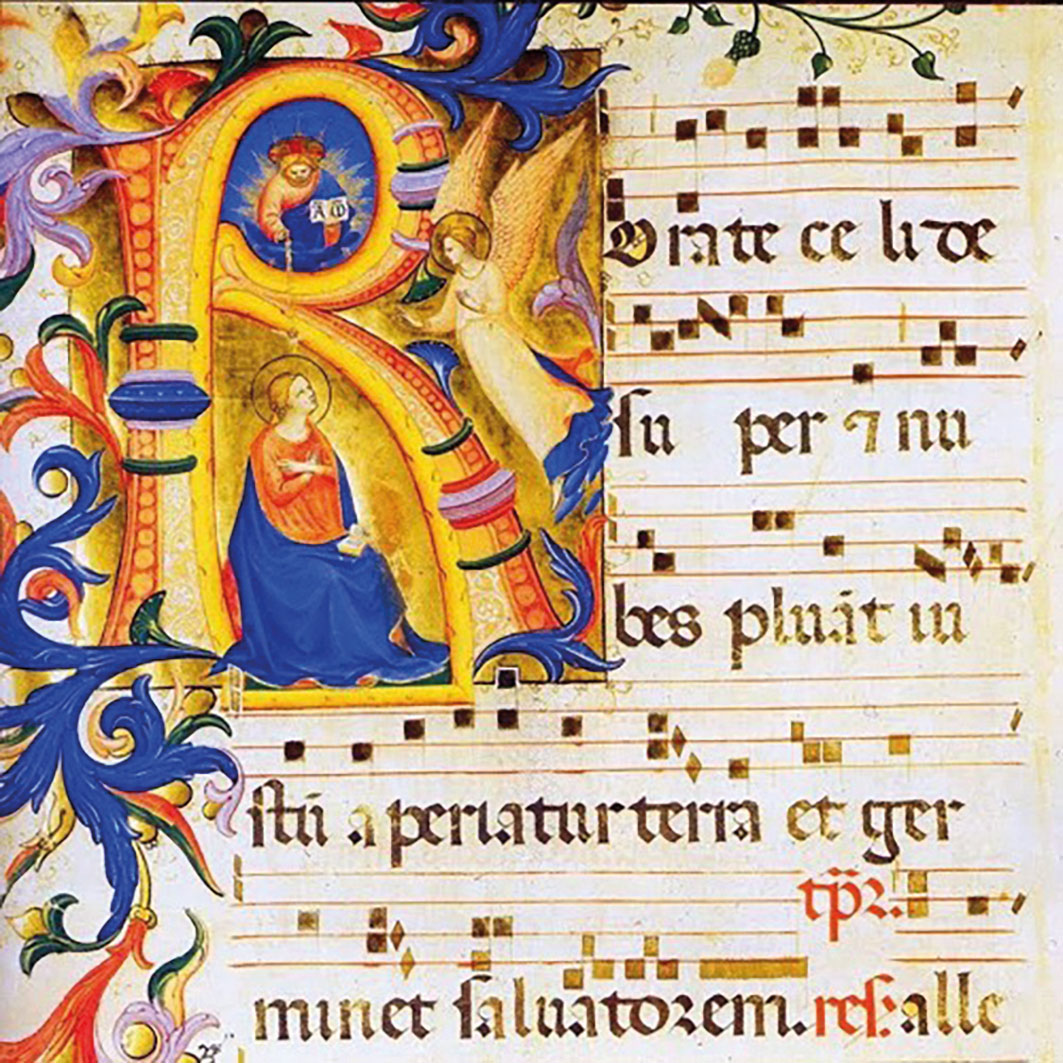 A ω
R Orate ce li de
su per ⁊ nu
bes pluāt iu
stū a periatur terra et ger
tp̄r.
minet saluatorem. res. alle